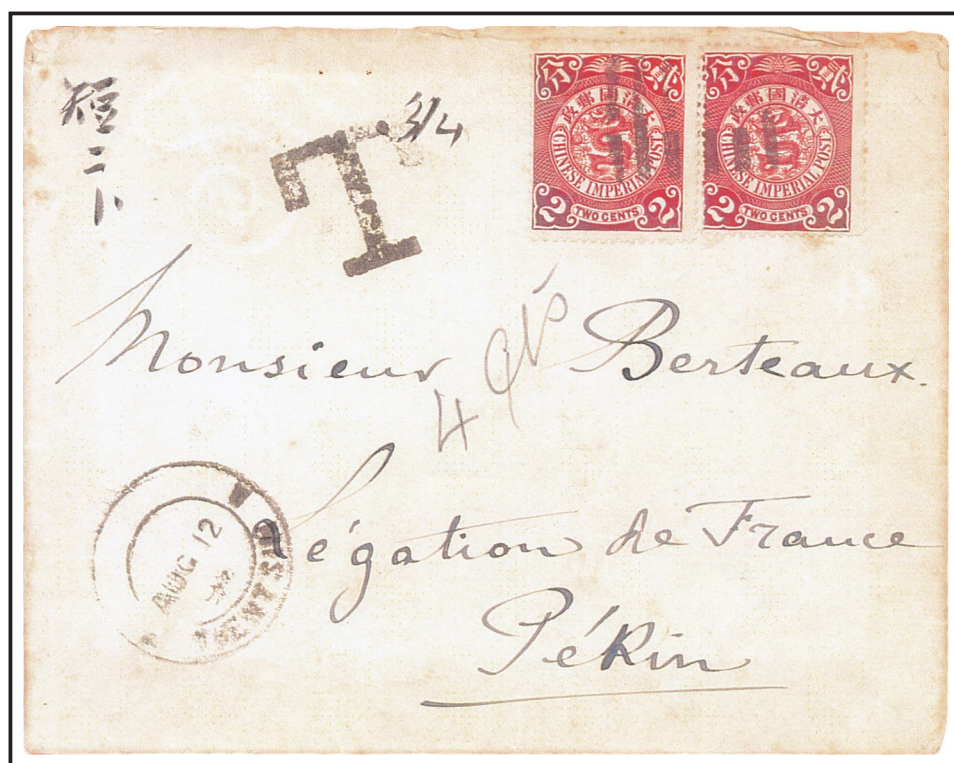 短
二
T 3/4
分 貳
大清國郵政
CHINESE IMPERIAL POST
2 TWO CENTS 2
分 貳
大清國郵政
CHINESE IMPERIAL POST
2 TWO CENTS 2
Monsieur Berteaux.
4
Légation de France
AUG 12
Pékin